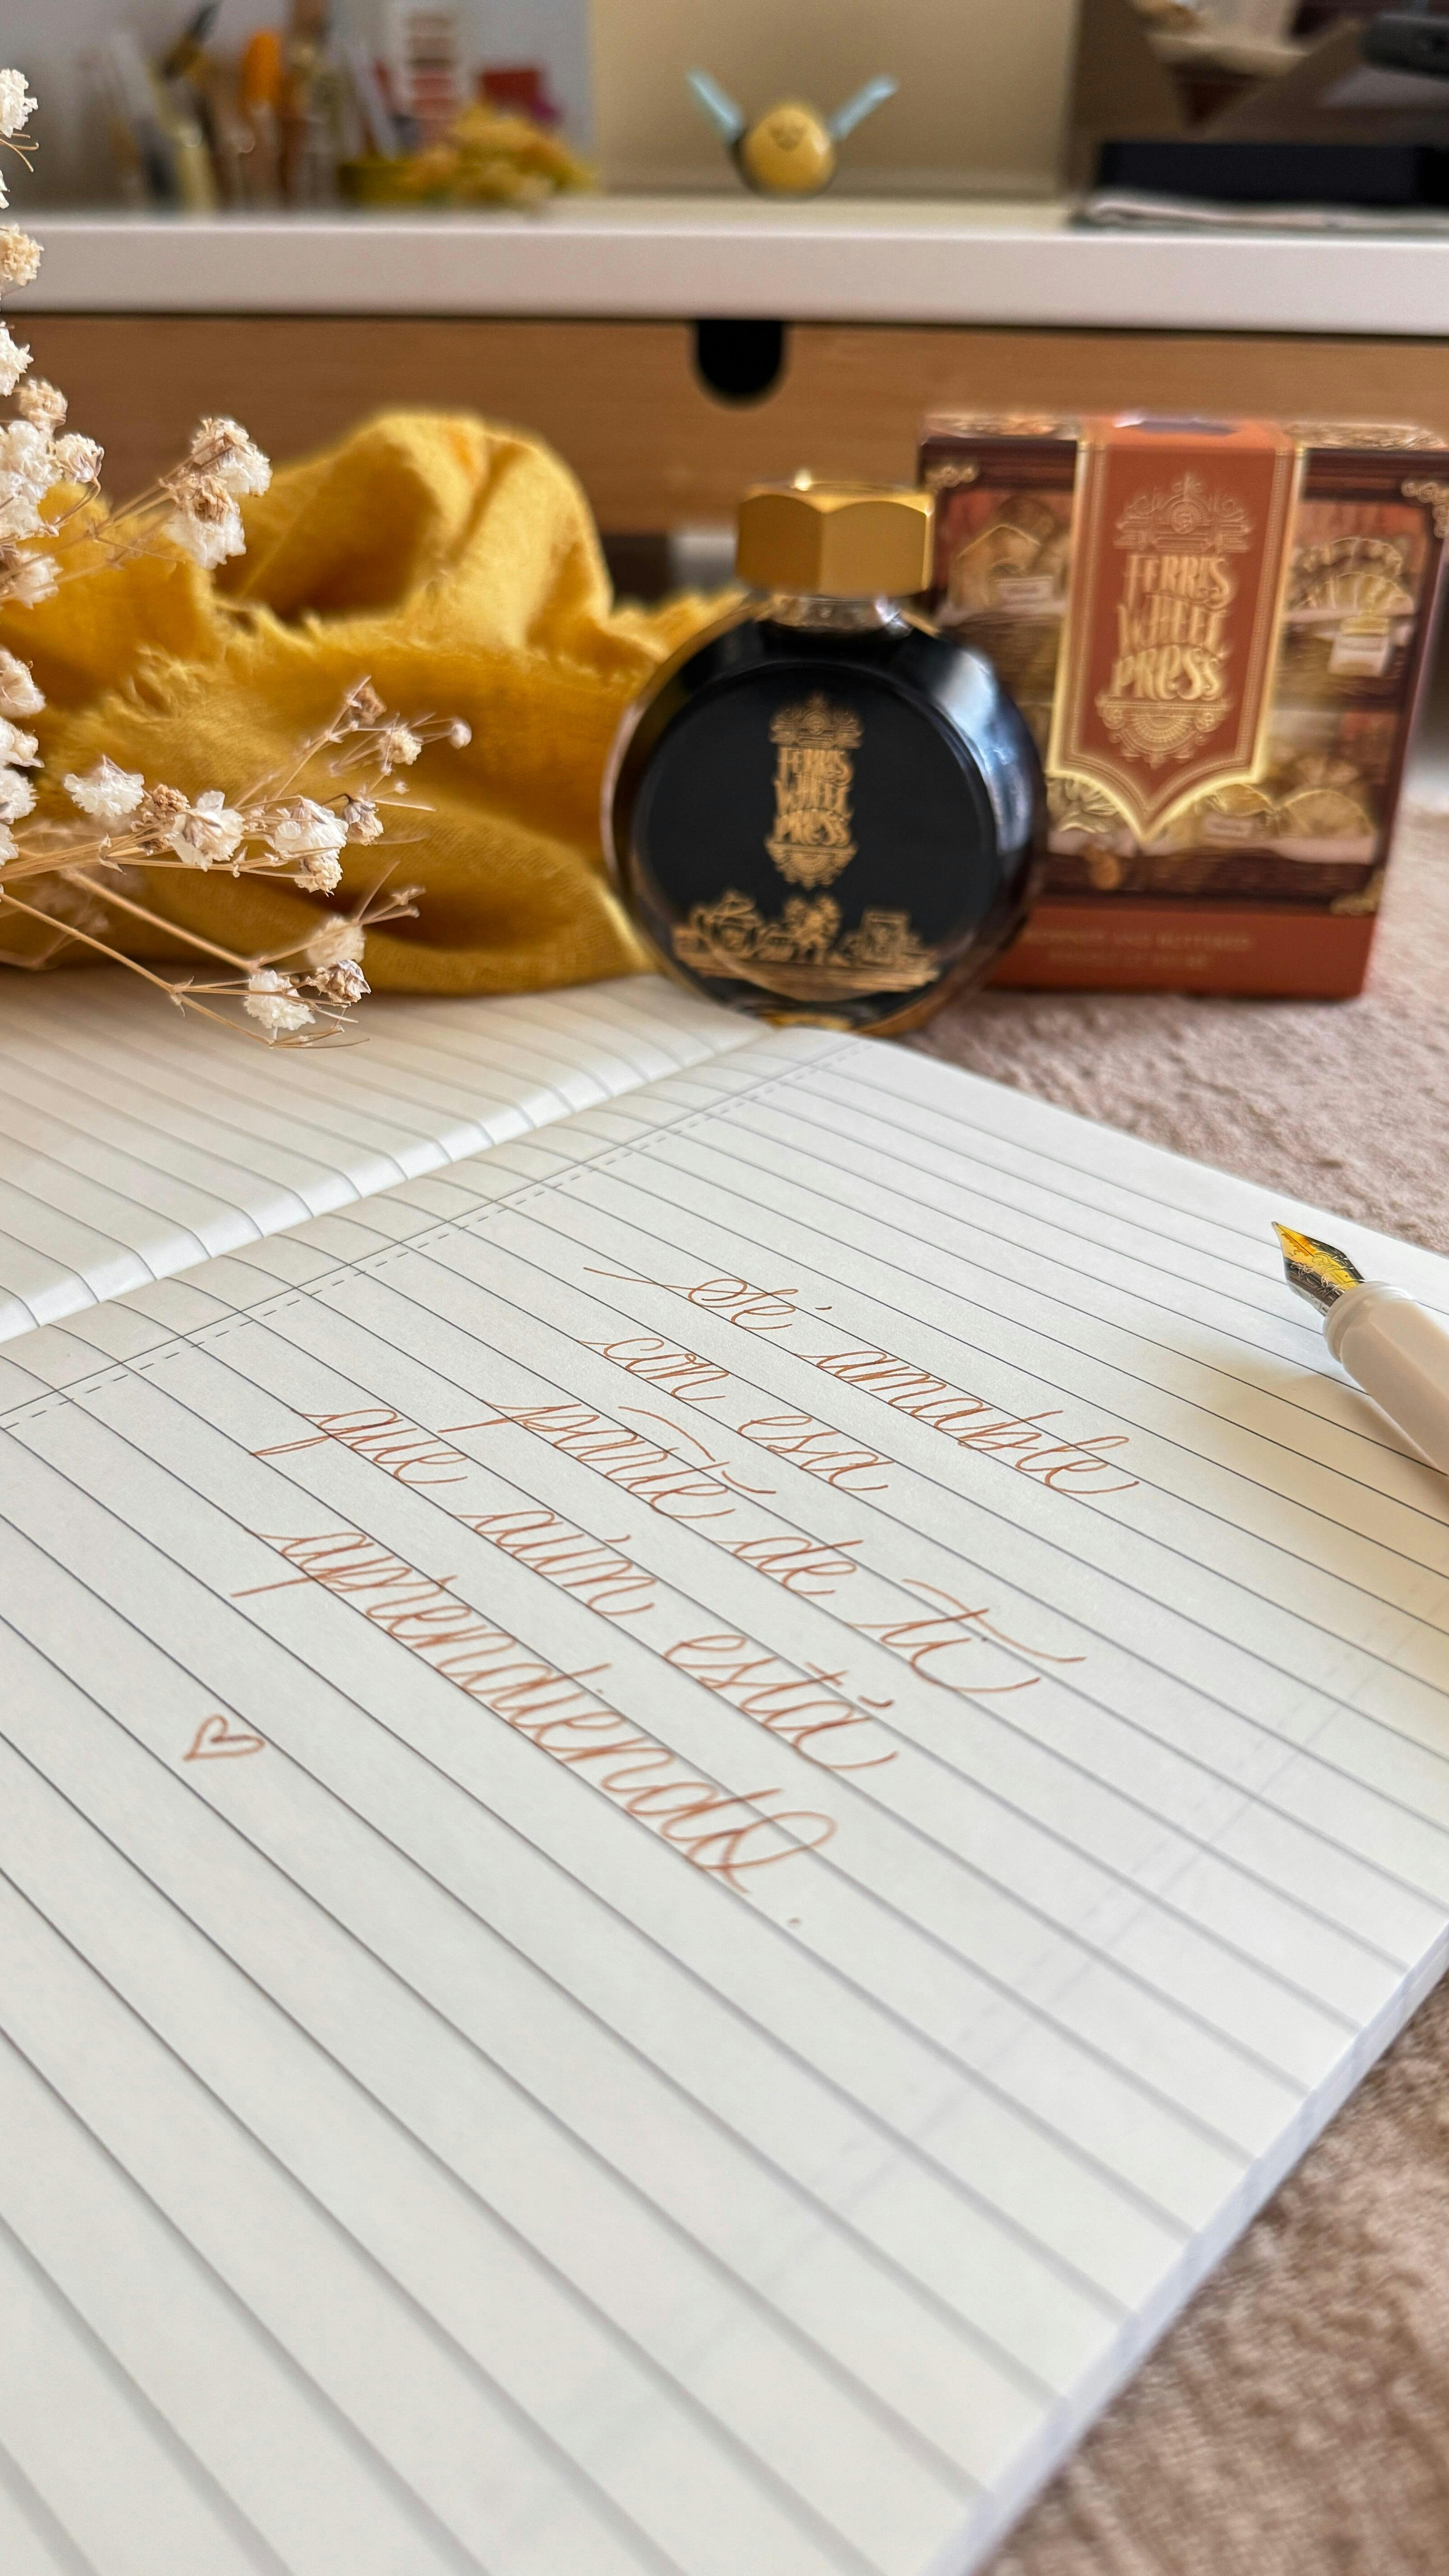 FERRIS
WHEEL
PRESS
FERRIS
WHEEL
PRESS
BUTTERED
Sé amable
con esa
parte de ti
que aún está
aprendiendo.